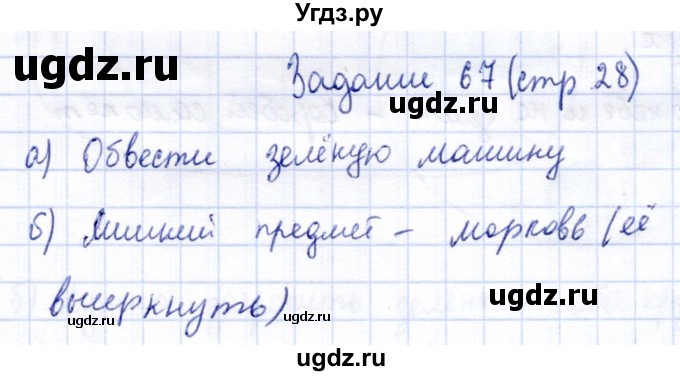 Угдз.ру
ugdz.ru
Задание 67 (стр 28)
ugdz.ru
а) Обвести зелёную машину
ugdz.ru
б) Лишний предмет – морковь (её
ugdz.ru
вычеркнуть)
ugdz.ru
ugdz.ru
ugdz.ru